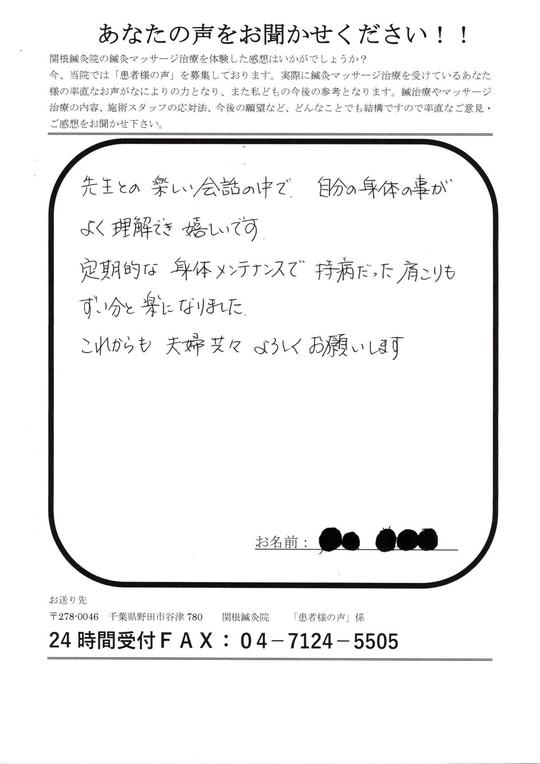 あなたの声をお聞かせください！！
関根鍼灸院の鍼灸マッサージ治療を体験した感想はいかがでしょうか？
今、当院では「患者様の声」を募集しております。実際に鍼灸マッサージ治療を受けているあなた
様の率直なお声がなによりの力となり、また私どもの今後の参考となります。鍼治療やマッサージ
治療の内容、施術スタッフの応対法、今後の願望など、どんなことでも結構ですので率直なご意見・
ご感想をお聞かせ下さい。
先生との楽しい会話の中で、自分の身体の事が
よく理解でき嬉しいです。
定期的な身体メンテナンスで持病だった肩こりも
ずい分と楽になりました。
これからも夫婦共々よろしくお願いします
お名前：
お送り先
〒278-0046 千葉県野田市谷津780 関根鍼灸院 「患者様の声」係
24時間受付ＦＡＸ：０４－7124－5505